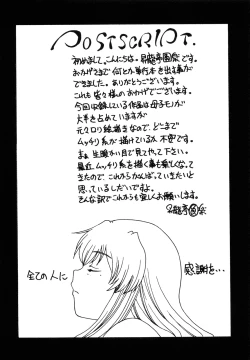 POSTSCRIPT.
初めまして、こんにちは。昇龍亭圓楽です。
おかげさまで何とか単行本を出す事が
できました。ありがとうございます。
これも皆々様のおかげでございます。
今回収録している作品は母子モノが
大半を占めていますが
元々ロリ絵描きなので、どこまで
ムッチリ系が描けているか不安です。
まぁ、生暖かい目で見てやって下さい。
最近、ムッチリ系を描く事も楽しくなって
きたので、これからがんばっていきたいと
思っているしだいです。
そんな訳でこれからも宜しくお願いします。
全ての人に
感謝を…